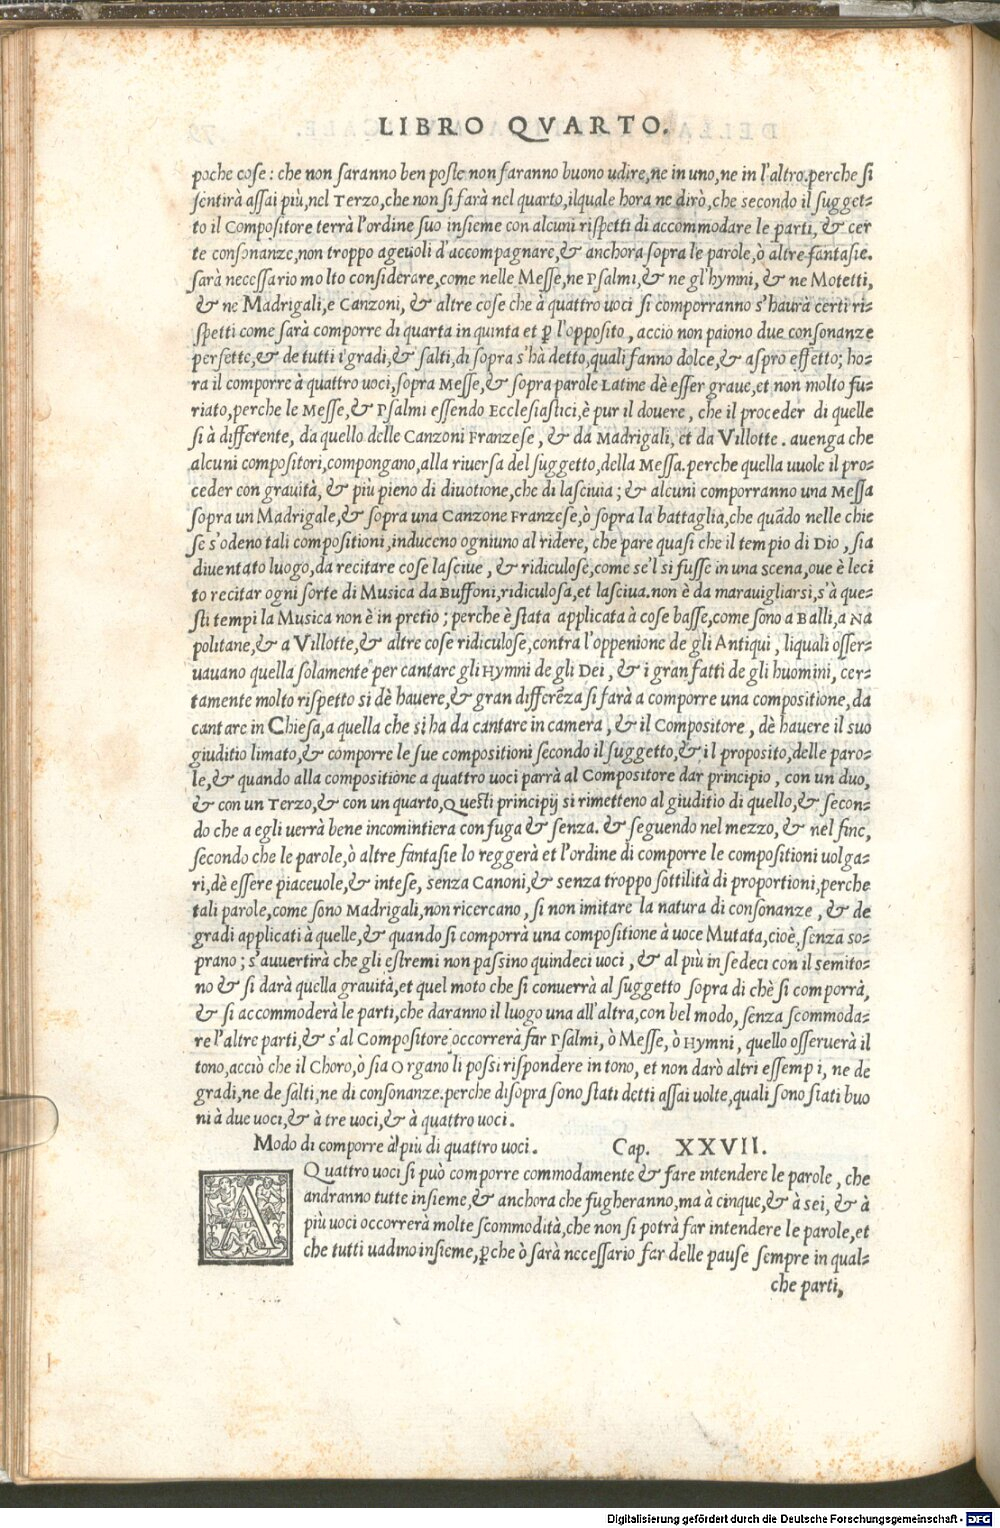 LIBRO QVARTO.
poche cose: che non saranno ben poste non faranno buono udire, ne in uno, ne in l'altro. perche si
sentirà assai più, nel Terzo, che non si farà nel quarto, ilquale hora ne dirò, che secondo il sugget-
to il Compositore terrà l'ordine suo insieme con alcuni rispetti di accommodare le parti, & cer
te consonanze, non troppo ageuoli d'accompagnare, & anchora sopra le parole, ò altre fantasie.
sarà necessario molto considerare, come nelle Messe, ne Psalmi, & ne gl'hymni, & ne Motetti,
& ne Madrigali, e Canzoni, & altre cose che à quattro uoci si comporranno s'haurà certi ri-
spetti come sarà comporre di quarta in quinta et ꝑ l'opposito, acciò non paiono due consonanze
perfette, & de tutti i gradi, & salti, di sopra s'hà detto, quali fanno dolce, & aspro effetto; ho-
ra il comporre à quattro uoci, sopra Messe, & sopra parole Latine dè esser graue, et non molto fu-
riato, perche le Messe, & Psalmi essendo Ecclesiastici, è pur il douere, che il proceder di quelle
si à differente, da quello delle Canzoni Franzese, & da Madrigali, et da Villotte. auenga che
alcuni compositori, compongano, alla riuersa del suggetto, della Messa. perche quella uuole il pro-
ceder con grauità, & più pieno di diuotione, che di lasciuia; & alcuni comporranno una Messa
sopra un Madrigale, & sopra una Canzone Franzese, ò sopra la battaglia, che quãdo nelle chie
se s'odeno tali compositioni, induceno ogniuno al ridere, che pare quasi che il tempio di Dio, sia
diuentato luogo, da recitare cose lasciue, & ridiculose, come se'l si fusse in una scena, oue è leci
to recitar ogni sorte di Musica da Buffoni, ridiculosa, et lasciua. non è da marauigliarsi, s'à que-
sti tempi la Musica non è in pretio; perche è stata applicata à cose basse, come sono a Balli, a Na
politane, & a Villotte, & altre cose ridiculose, contra l'oppenione de gli Antiqui, liquali osser-
uauano quella solamente per cantare gli Hymni de gli Dei, & i gran fatti de gli huomini, cer-
tamente molto rispetto si dè hauere, & gran differẽza si farà a comporre una compositione, da
cantare in Chiesa, a quella che si ha da cantare in camera, & il Compositore, dè hauere il suo
giuditio limato, & comporre le sue compositioni secondo il suggetto, & il proposito, delle paro-
le, & quando alla compositione a quattro uoci parrà al Compositore dar principio, con un duo,
& con un Terzo, & con un quarto, Questi principij si rimetteno al giuditio di quello, & secon-
do che a egli uerrà bene incomintiera con fuga & senza. & seguendo nel mezzo, & nel fine,
secondo che le parole, ò altre fantasie lo reggerà et l'ordine di comporre le compositioni uolga-
ri, dè essere piaceuole, & intese, senza Canoni, & senza troppo sottilità di proportioni, perche
tali parole, come sono Madrigali, non ricercano, si non imitare la natura di consonanze, & de
gradi applicati à quelle, & quando si comporrà una compositione à uoce Mutata, cioè, senza so-
prano; s'auuertirà che gli estremi non passino quindeci uoci, & al più in sedeci con il semito-
no & si darà quella grauità, et quel moto che si conuerrà al suggetto sopra di chè si comporrà,
& si accommoderà le parti, che daranno il luogo una all'altra, con bel modo, senza scommoda-
re l'altre parti, & s'al Compositore occorrerà far Psalmi, ò Messe, ò Hymni, quello osseruerà il
tono, acciò che il Choro, ò sia Organo li possi rispondere in tono, et non darò altri essempi, ne de
gradi, ne de salti, ne di consonanze. perche disopra sono stati detti assai uolte, quali sono stati buo
ni à due uoci, & à tre uoci, & à quattro uoci.
Modo di comporre à più di quattro uoci. Cap. XXVII.
A Quattro uoci si può comporre commodamente & fare intendere le parole, che
andranno tutte insieme, & anchora che fugheranno, ma à cinque, & à sei, & à
più uoci occorrerà molte scommodità, che non si potrà far intendere le parole, et
che tutti uadino insieme, ꝑche ò sarà necessario far delle pause sempre in qual-
che parti,
Digitalisierung gefördert durch die Deutsche Forschungsgemeinschaft - DFG